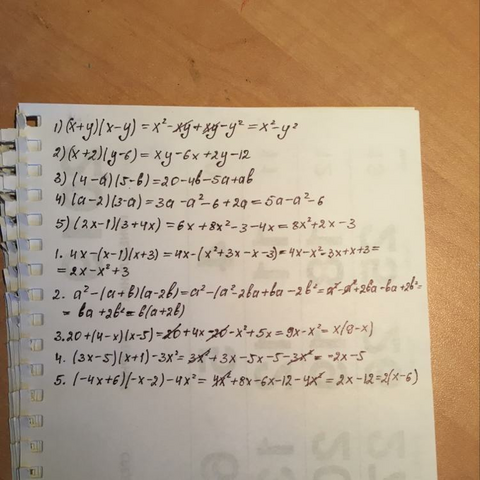 1) (x+y)(x-y) = x²-xy+xy-y² = x²-y²
2) (x+2)(y-6) = xy-6x+2y-12
3) (4-a)(5-b)=20-4b-5a+ab
4) (a-2)(3-a)=3a-a²-6+2a=5a-a²-6
5) (2x-1)(3+4x)=6x+8x²-3-4x=8x²+2x-3
1. 4x-(x-1)(x+3)=4x-(x²+3x-x-3)=4x-x²-3x+x+3=
=2x-x²+3
2. a²-(a+b)(a-2b)=a²-(a²-2ba+ba-2b²=a²-a²+2ba-ba+2b²=
= ba+2b²=b(a+2b)
3. 20+(4-x)(x-5)=20+4x-20-x²+5x=9x-x²=x(9-x)
4. (3x-5)(x+1)-3x²=3x²+3x-5x-5-3x²=-2x-5
5. (-4x+6)(-x-2)-4x²=4x²+8x-6x-12-4x²=2x-12=2(x-6)